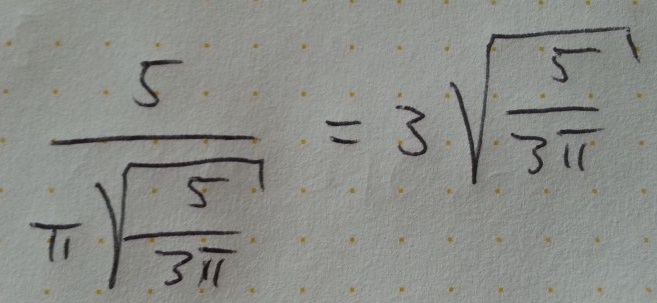 5/(π√(5/(3π))) = 3√(5/(3π))